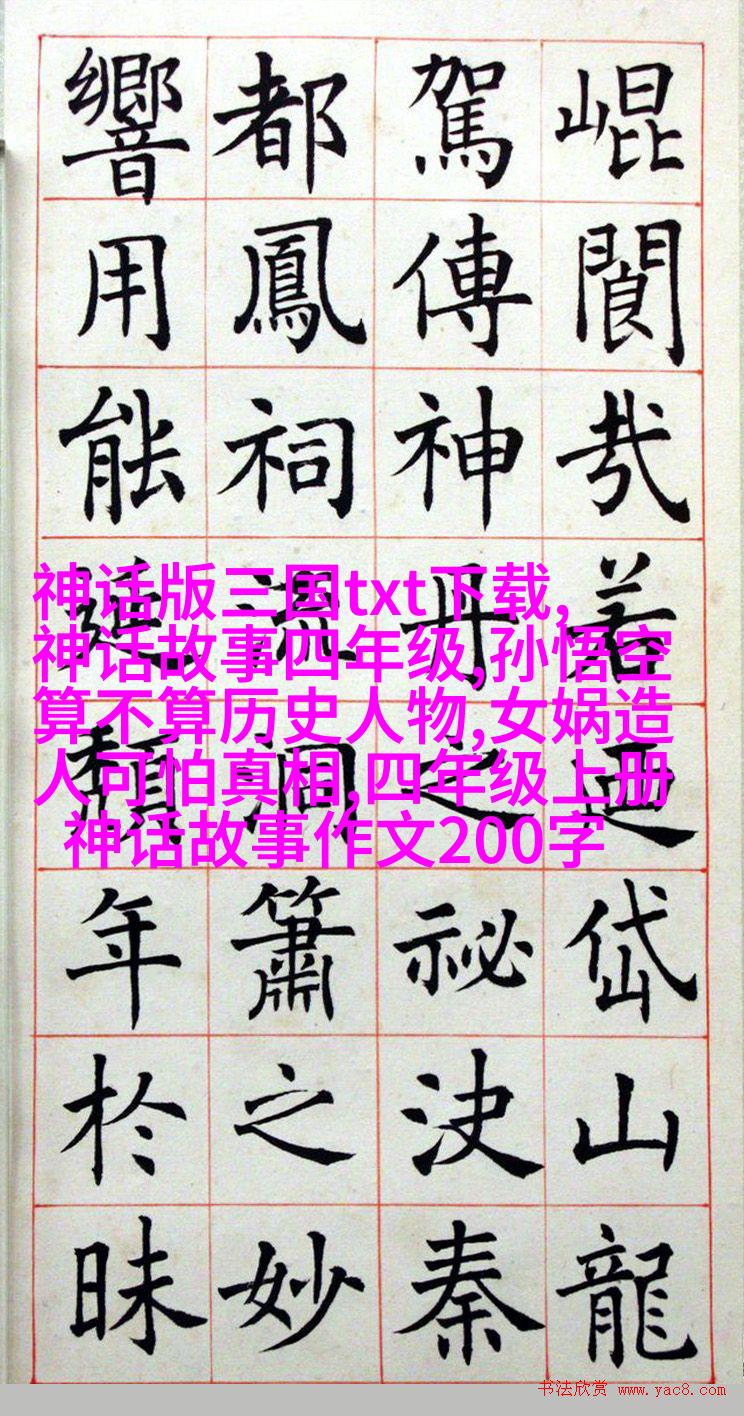 崐閬㢤若迺岱山龍
駕傳神丹之祕決秦
都鳳祠流洞簫之妙
響用能延頹年於昧
神话版三国txt下载,
神话故事四年级,孙悟空
算不算历史人物,女娲造
人可怕真相,四年级上册
神话故事作文200字
书法欣赏 www.yac8.com